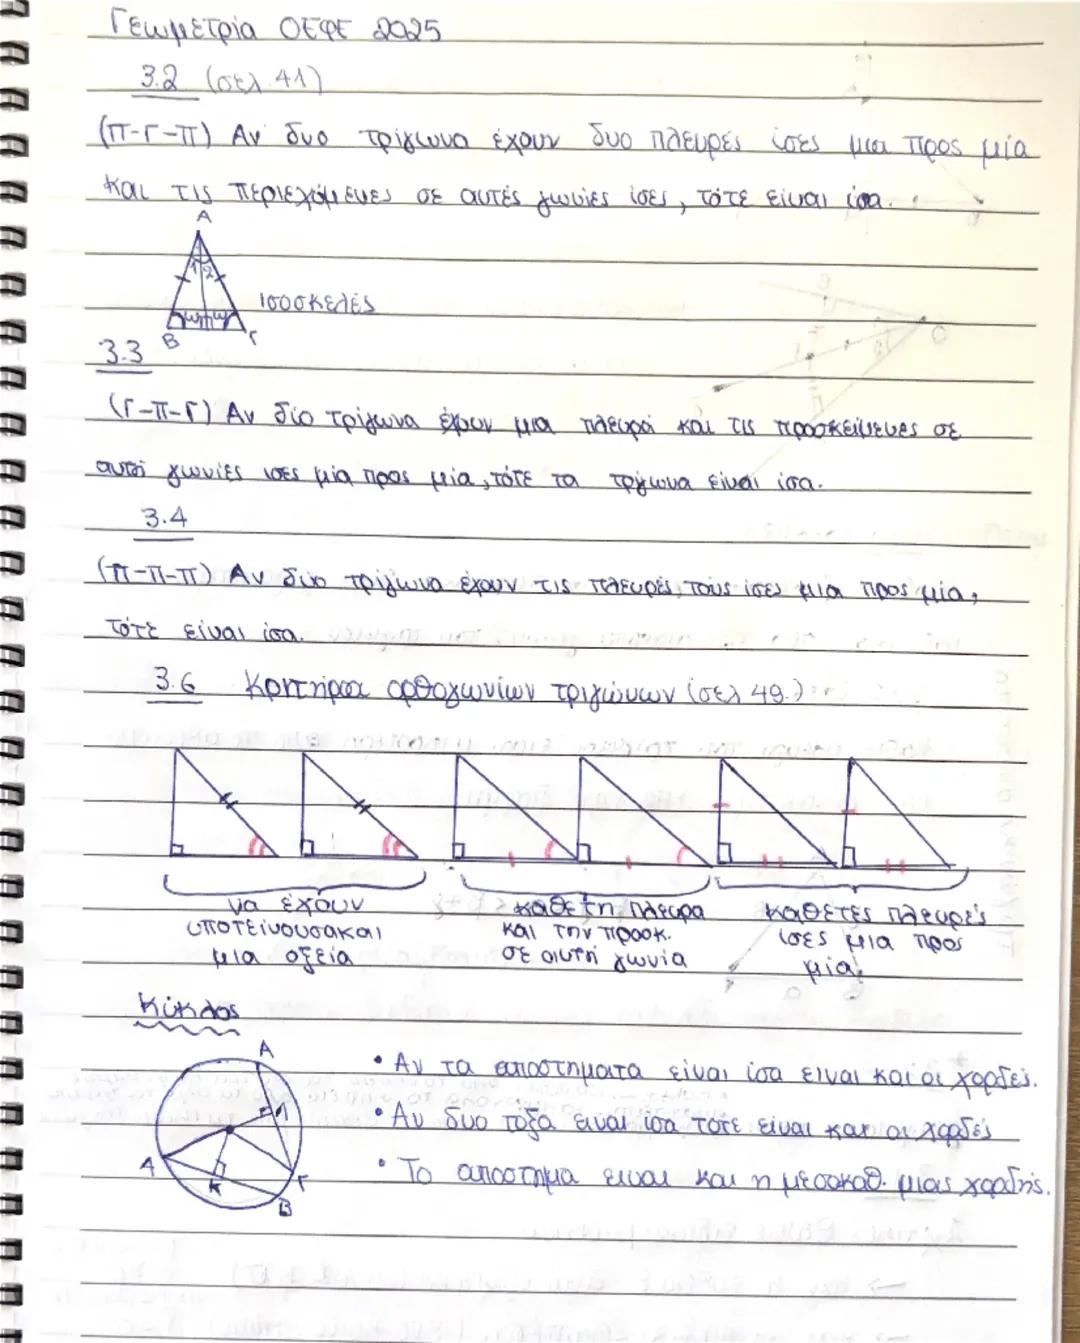 Γεωμετρία ΟΕΦΕ 2025
3.2 (σελ 41)
(Π-Γ-Π) Αν δυο τρίγωνα έχουν δυο πλευρές ίσες μια προς μία
και τις περιεχόμενες σε αυτές γωνίες ίσες, τότε είναι ίσα.
Α
1 2
ω ω
Ισοσκελές
Β Γ
3.3
(Γ-Π-Γ) Αν δύο τρίγωνα έχουν μια πλευρά και τις προσκείμενες σε
αυτή γωνίες ίσες μία προς μία, τότε τα τρίγωνα είναι ίσα.
3.4
(Π-Π-Π) Αν δύο τρίγωνα έχουν τις πλευρές τους ίσες μια προς μία,
τότε είναι ίσα.
3.6 Κριτήρια ορθογωνίων τριγώνων (σελ 49.)
να έχουν
υποτείνουσα και
μια οξεία
κάθετη πλευρα
και την προσκ.
σε αυτή γωνία
κάθετες πλευρές
ίσες μια προς
μία.
Κύκλος
Α
Λ
Α
Κ
Γ
Β
• Αν τα αποστήματα είναι ίσα ειναι και οι χορδές.
• Αν δυο τόξα ειναι ίσα τότε είναι και οι χορδές
• Το αποστημα ειναι και η μεσοκαθ. μιας χορδής.